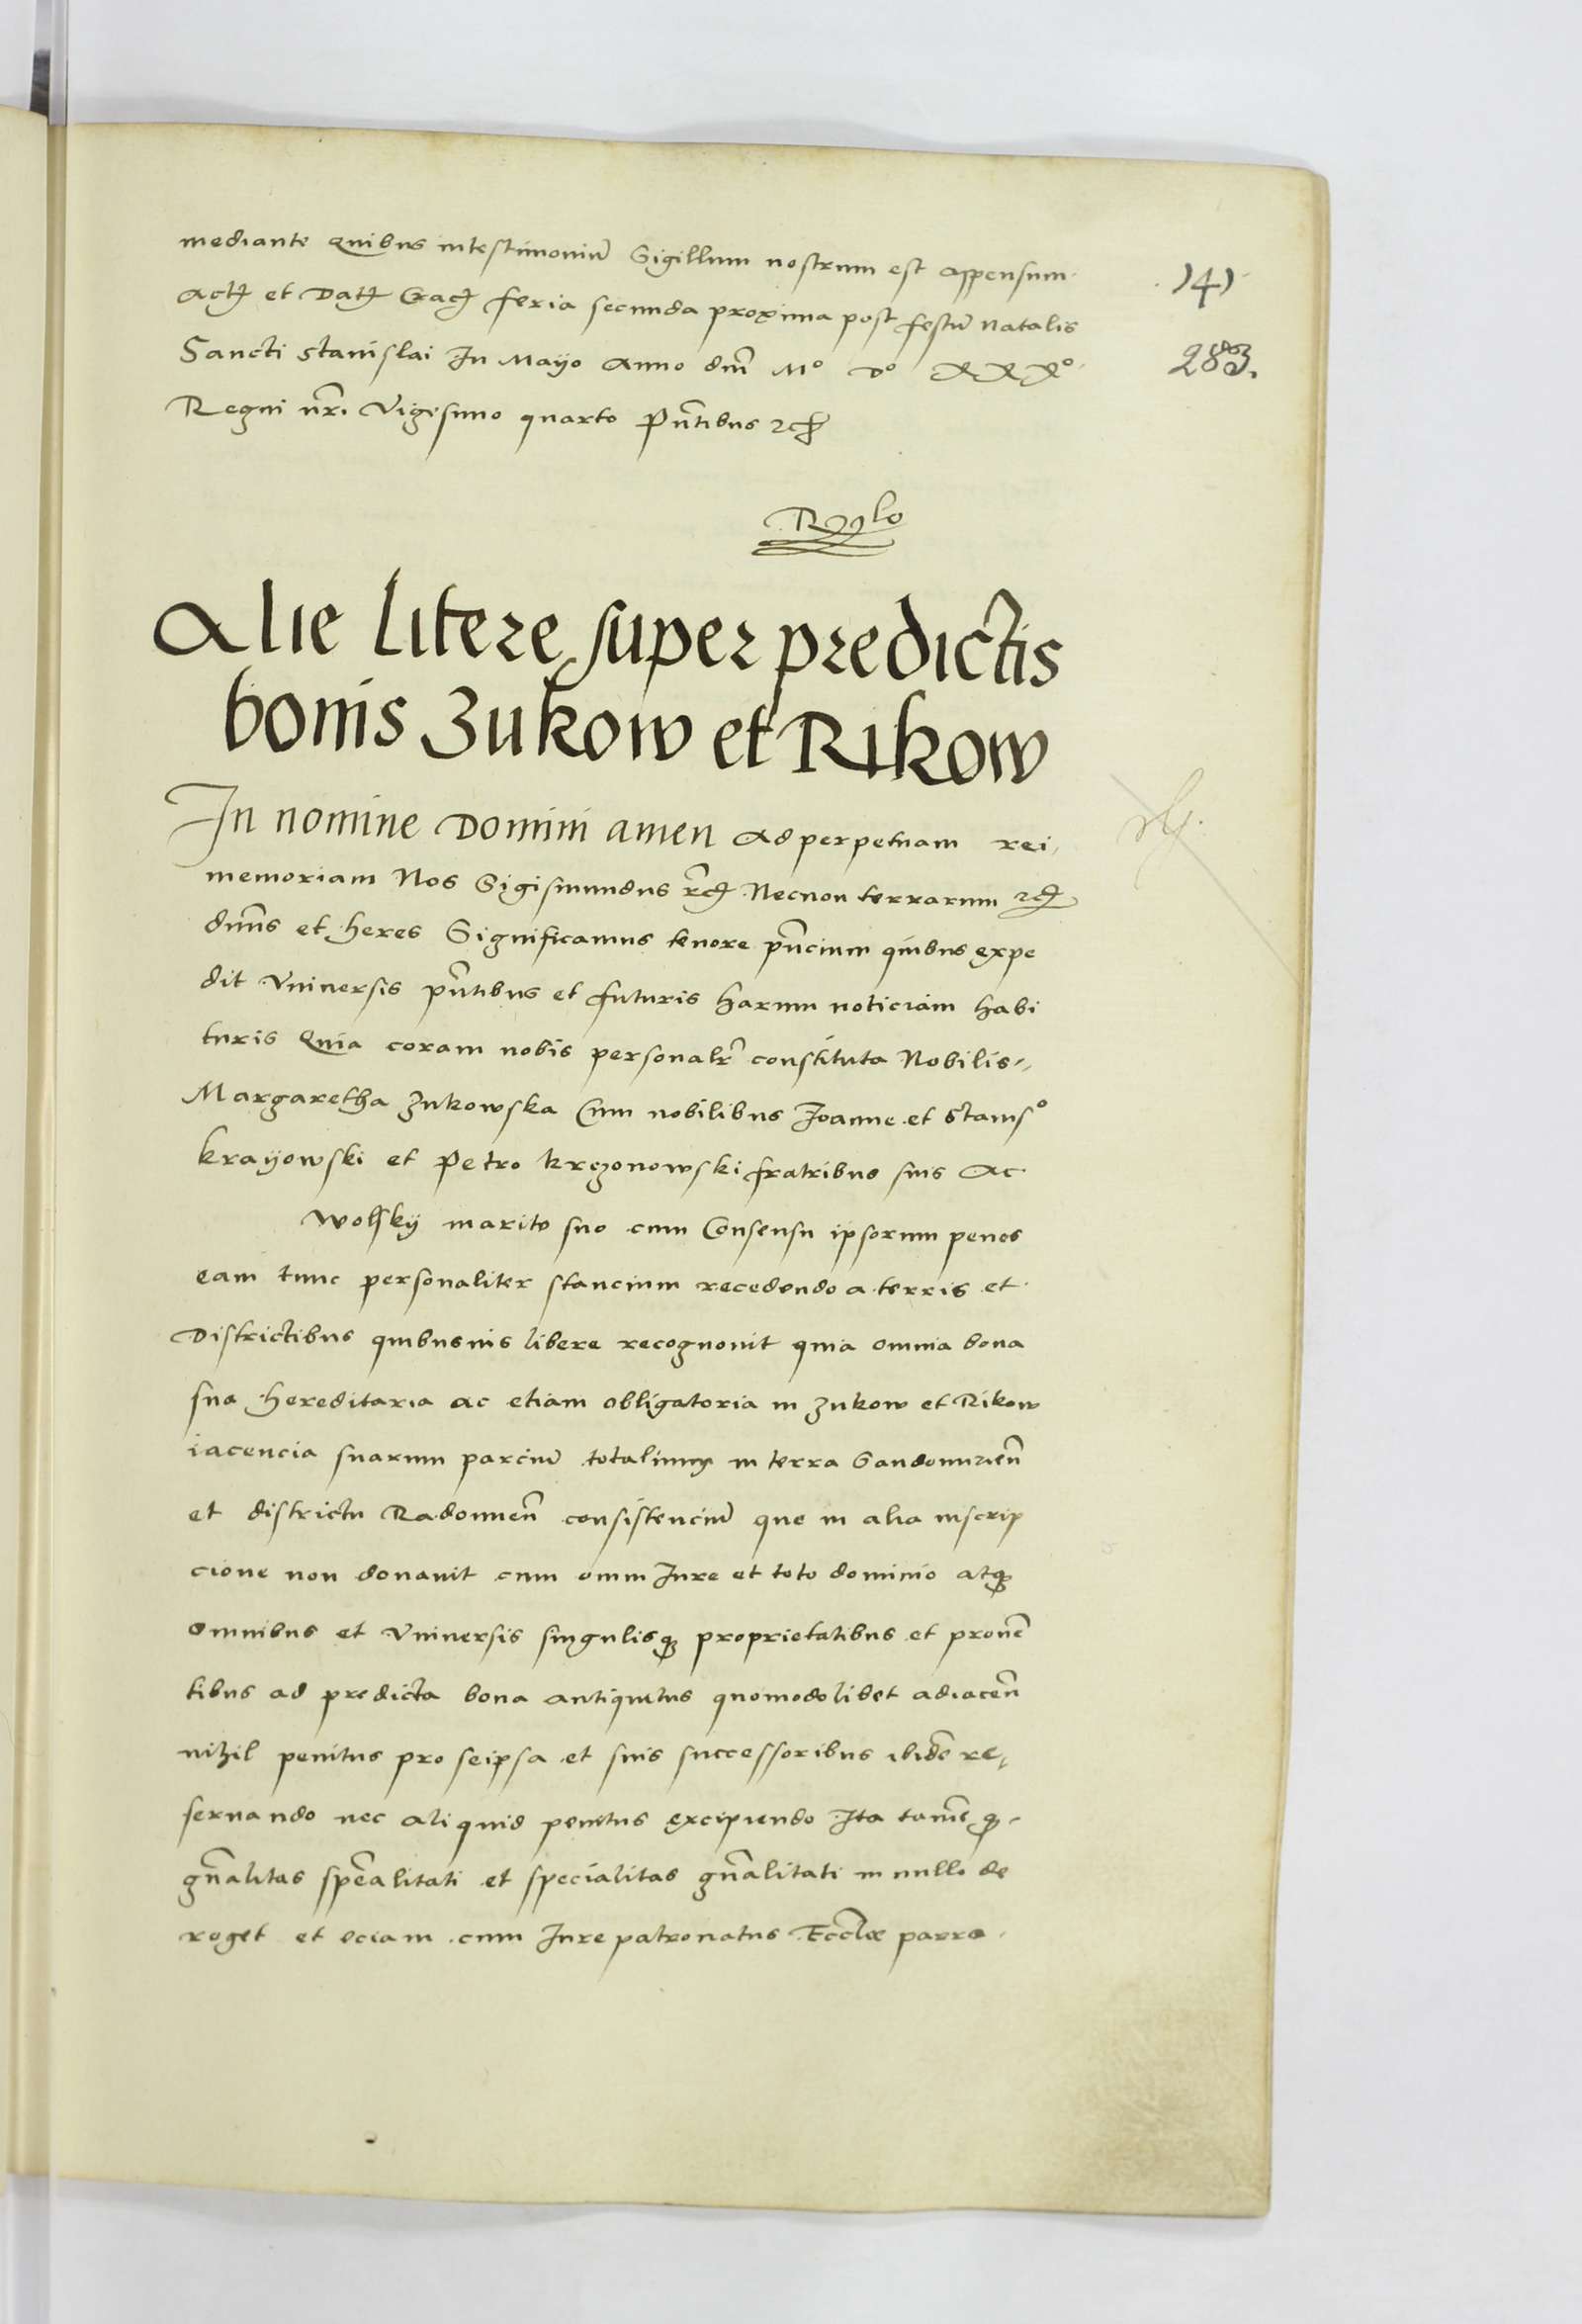 mediante Quibus in testimoniũ Sigillum nostrum est appensum
.141.
Actũ et Datũ Crac̃ feria secunda proxima post festũ Natalis
Sancti Stanislai In Mayo Anno dnĩ Mº Dº XXXº
283.
Regni nrĩ Vigesimo quarto Pñtibus etc̃
Alie Litere super predictis
bonis Zukow et Rikow
In nomine Domini amen Ad perpetuam rei,
memoriam Nos Sigismundus etc̃ Necnon terrarum etc̃
dnũs et heres Significamus tenore pñcium quibus expe
dit Vniuersis pñtibus et futuris harum noticiam habi
turis Quia coram nobis personalr̃ constituta Nobilis
Margaretha Zukowska Cum nobilibus Joanne et Stanisº
Krayowski et Petro Krczonowski fratribus suis Ac
Wolsky marito suo cum Consensu ipsorum penes
eam tunc personaliter stancium recedendo a terris et
Districtibus quibusuis libere recognouit quia omnia bona
sua hereditaria ac etiam obligatoria in Zukow et Rikow
iacencia suarum parciũ totalium in terra Sandomirieñ
et districtu Radomieñ consistenciũ que in alia inscrip
cione non donauit cum omni Iure et toto dominio atq̃
omnibus et Vniuersis singulisq̃ proprietatibus et prouẽ
tibus ad predicta bona antiquitus quomodolibet adiaceñ
nihil penitus pro seipsa et suis successoribus ibidẽ re,
seruando nec aliquid penitus excipiendo Ita tamẽ q̃
gñalitas specãlitati et specialitas gñalitati in nullo de
roget et eciam cum Iure patronatus Eccl̃ie parro